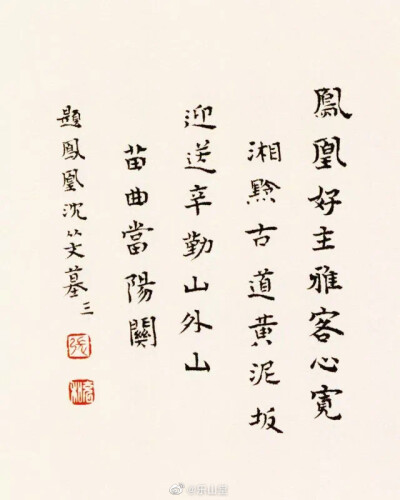 鳳凰好主雅客心寬
湘黔古道黃泥坂
迎送辛勤山外山
苗曲當陽關
題鳳凰沈从文墓三
張